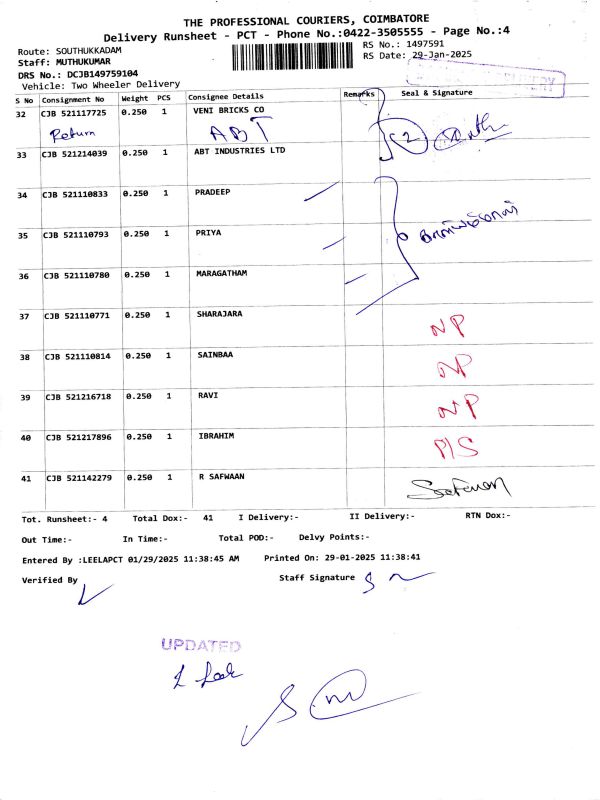 THE PROFESSIONAL COURIERS, COIMBATORE
Delivery Runsheet - PCT - Phone No.:0422-3505555 - Page No.:4
Route: SOUTHUKKADAM
RS No.: 1497591
Staff: MUTHUKUMAR
RS Date: 29-Jan-2025
DRS No.: DCJB149759104
Vehicle: Two Wheeler Delivery
DELIVERY
S No Consignment No Weight PCS Consignee Details Remarks Seal & Signature
32 CJB 521117725 0.250 1 VENI BRICKS CO
Return ABT 2
33 CJB 521214039 0.250 1 ABT INDUSTRIES LTD
34 CJB 521110833 0.250 1 PRADEEP
35 CJB 521110793 0.250 1 PRIYA
36 CJB 521110780 0.250 1 MARAGATHAM
37 CJB 521110771 0.250 1 SHARAJARA NP
38 CJB 521110814 0.250 1 SAINBAA NP
39 CJB 521216718 0.250 1 RAVI NP
40 CJB 521217896 0.250 1 IBRAHIM P/S
41 CJB 521142279 0.250 1 R SAFWAAN Safwan
Tot. Runsheet:- 4 Total Dox:- 41 I Delivery:- II Delivery:- RTN Dox:-
Out Time:- In Time:- Total POD:- Delvy Points:-
Entered By :LEELAPCT 01/29/2025 11:38:45 AM Printed On: 29-01-2025 11:38:41
Verified By Staff Signature
UPDATED